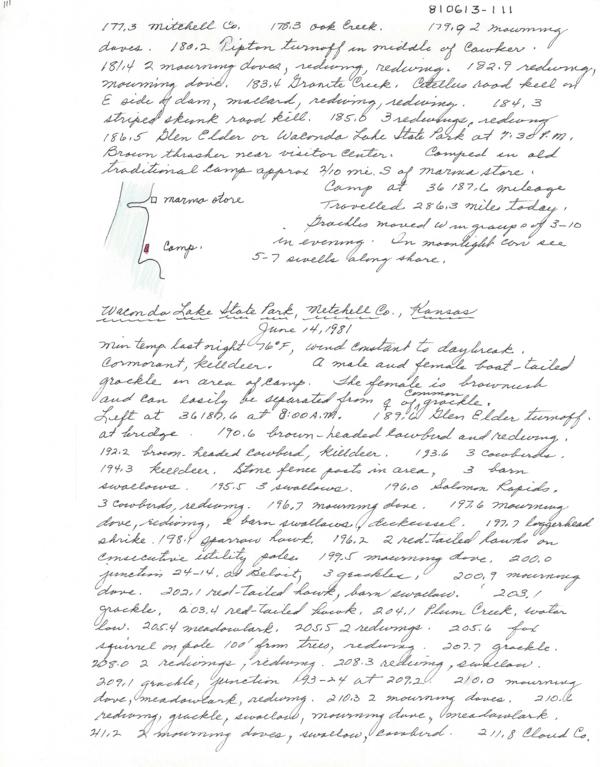 111
810613-111
177.3 Mitchell Co. 178.3 Oak Creek. 179.9 2 mourning
doves. 180.2 Tipton turnoff in middle of Cawker.
181.4 2 mourning doves, redwing, redwing. 182.9 redwing,
mourning dove. 183.4 Granite Creek. road kill on
E side of dam, mallard, redwing, redwing. 184.3
striped skunk road kill. 185.0 3 redwings, redwing
186.5 Glen Elder or Waconda Lake State Park at 7:30 P.M.
Brown thrasher near visitor center. Camped in old
traditional camp approx 2/10 mi. S of marina store.
Camp at 36187.6 mileage
marma store
Travelled 286.3 miles today.
Grackles moved W in groups of 3-10
Camp.
in evening. In moonlight can see
5-7 swells along shore.
Waconda Lake State Park, Mitchell Co., Kansas
June 14, 1981
Min temp last night 76°F, wind constant to daybreak.
Cormorant, killdeer. A male and female boat-tailed
grackle in area of camp. The female is brownish
and can easily be separated from ♀ of common grackle.
Left at 36187.6 at 8:00 A.M. 189.6 Glen Elder turnoff.
at bridge. 190.6 brown-headed cowbird and redwing.
192.2 brown-headed cowbird, killdeer. 193.6 3 cowbirds.
194.3 killdeer. Stone fence posts in area, 3 barn
swallows. 195.5 3 swallows. 196.0 Solomon Rapids.
3 cowbirds, redwing. 196.7 mourning dove. 197.6 mourning
dove, redwing, 2 barn swallows, dickcissel. 197.7 loggerhead
shrike. 198.1 sparrow hawk. 196.2 2 red-tailed hawks on
consecutive utility poles. 199.5 mourning dove. 200.0
junction 24-14. at Beloit, 3 grackles, 200.9 mourning
dove. 202.1 red-tailed hawk, barn swallow. 203.1
grackle. 203.4 red-tailed hawk. 204.1 Plum Creek, water
low. 205.4 meadowlark. 205.5 2 redwings. 205.6 fox
squirrel on pole 100' from trees, redwing. 207.7 grackle.
208.0 2 redwings, redwing. 208.3 redwing, swallow.
209.1 grackle, junction 193-24 at 209.2. 210.0 mourning
dove, meadowlark, redwing. 210.3 2 mourning doves. 210.6
redwing, grackle, swallow, mourning dove, meadowlark.
211.2 2 mourning doves, swallow, cowbird. 211.8 Cloud Co.